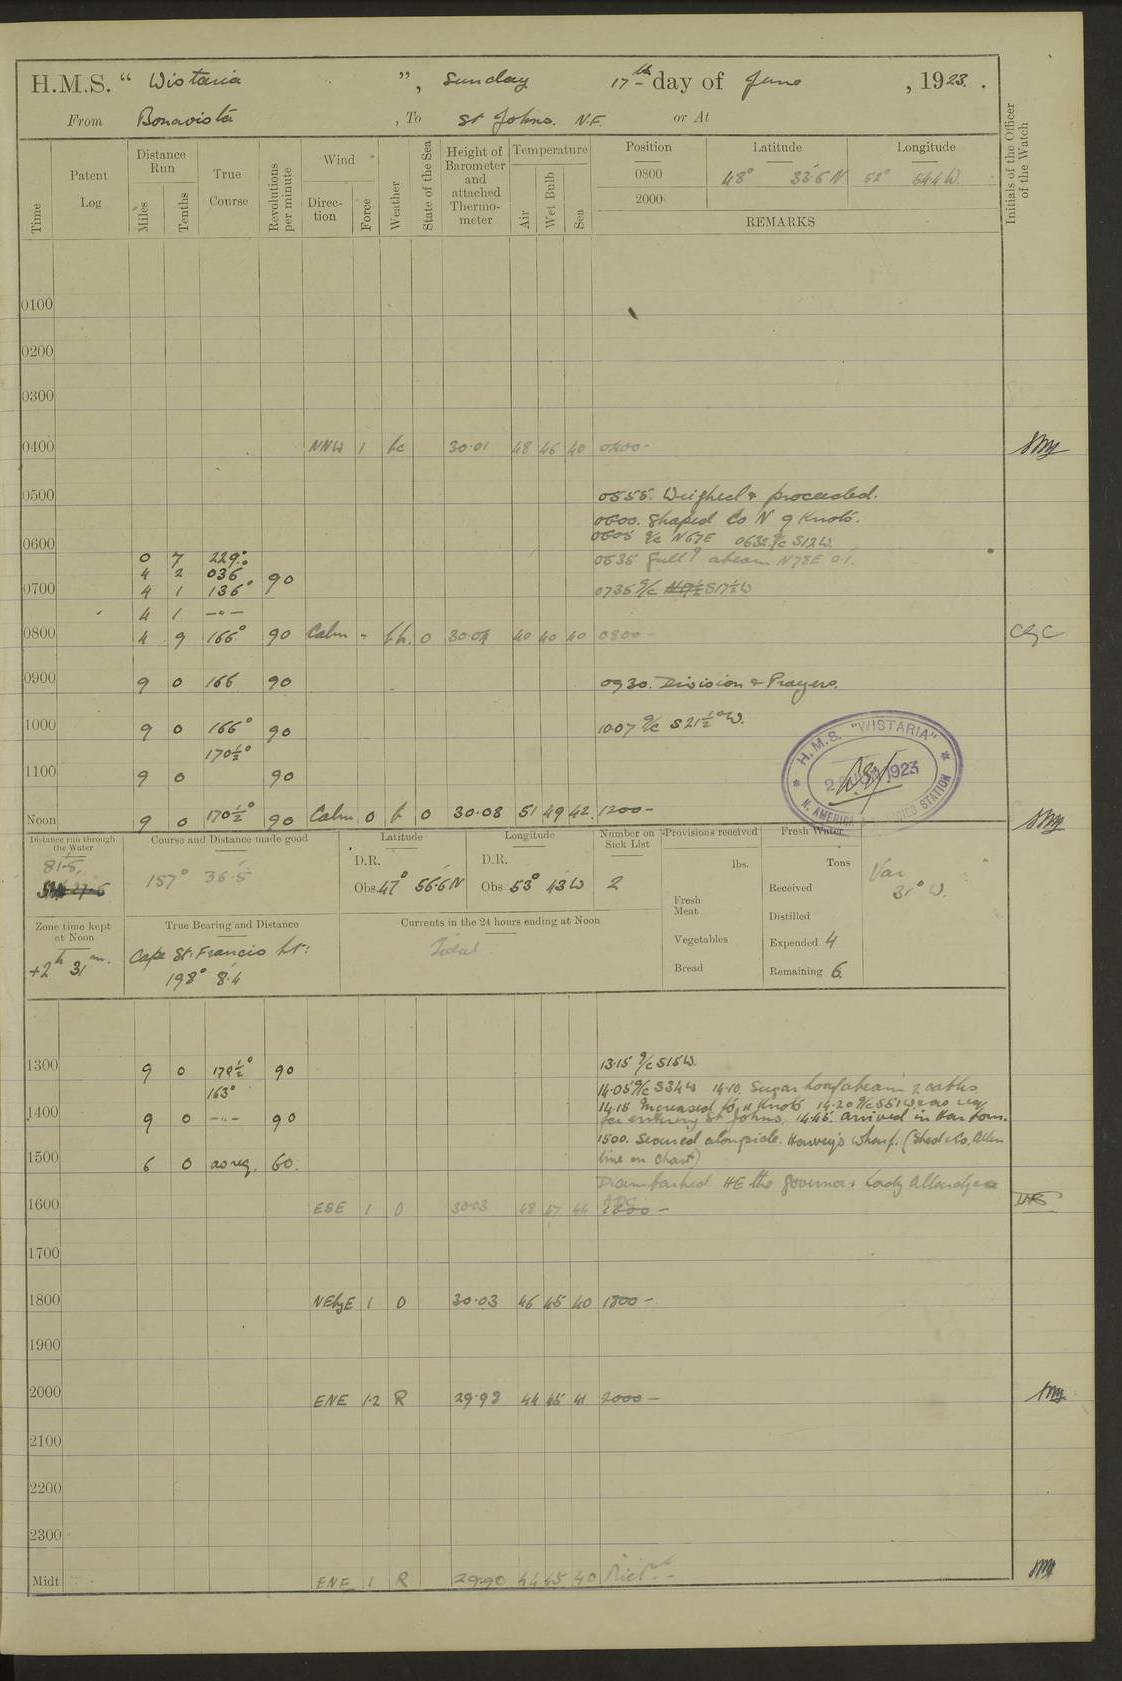 H.M.S. " Wistaria ", Sunday 17th day of June , 1923.
From Bonavista , To St Johns. N.F. or At
Time
Patent Log
Distance Run
Miles
Tenths
True Course
Revolutions per minute
Wind
Direction
Force
Weather
State of the Sea
Height of Barometer and attached Thermometer
Temperature
Air
Wet Bulb
Sea
Position Latitude Longitude
0800 48° 33.6 N 52° 54.4 W.
2000
REMARKS
Initials of the Officer of the Watch
0100
0200
0300
0400 NNW 1 bc 30.01 48 46 40 0400 -
0500 0555. Weighed & proceeded.
0600. Shaped Co N 9 Knots.
0600 0605 a/c N67E 0632 a/c S12W.
0 7 229° 0635 Gull I abeam N78E 0.1.
4 2 036
0700 4 1 136° 90 0735 a/c S17½W
4 1 —"—
0800 4 9 166° 90 Calm - 0 30.04 40 40 40 0800 -
0900 9 0 166 90 0930. Division & Prayers.
1000 9 0 166° 90 1007 a/c S21½°W.
170½°
1100 9 0 90
H.M.S. "WISTARIA"
1923
N. AMERICA STATION
Noon 9 0 170½° 90 Calm 0 b 0 30.08 51 49 42 1200 -
Distance run through the Water
81.5
Course and Distance made good
157° 36.5
Latitude
D.R.
Obs 47° 56.6 N
Longitude
D.R.
Obs 53° 13 W
Number on Sick List
2
Provisions received
lbs.
Fresh Meat
Vegetables
Bread
Fresh Water
Tons
Received
Distilled
Expended 4
Remaining 6.
Var 31° W.
Zone time kept at Noon
+2h 31m.
True Bearing and Distance
Cape St. Francis Lt:
198° 8.4
Currents in the 24 hours ending at Noon
Tidal
1300 9 0 170½° 90 13.15 a/c S15W.
163° 14.05 a/c S34W 14.10. Sugar Loaf abeam 2 cables.
1400 9 0 —"— 90 14.15 Increased to 11 Knots 14.20 a/c S51W & as req
for entering St Johns. 14.45. arrived in Harbour.
1500. Secured alongside. Harveys Wharf. (Shed & Co, Allen
1500 6 0 as req. 60. line on chart)
Disembarked HE the Governor & Lady Allardyce
ADC
1600 ESE 1 0 30.03 48 47 44 1600 -
1700
1800 NEbyE 1 0 30.03 46 45 40 1800 -
1900
2000 ENE 1-2 R 29.98 44 45 41 2000 -
2100
2200
2300
Midt ENE 1 R 29.90 44 45 40